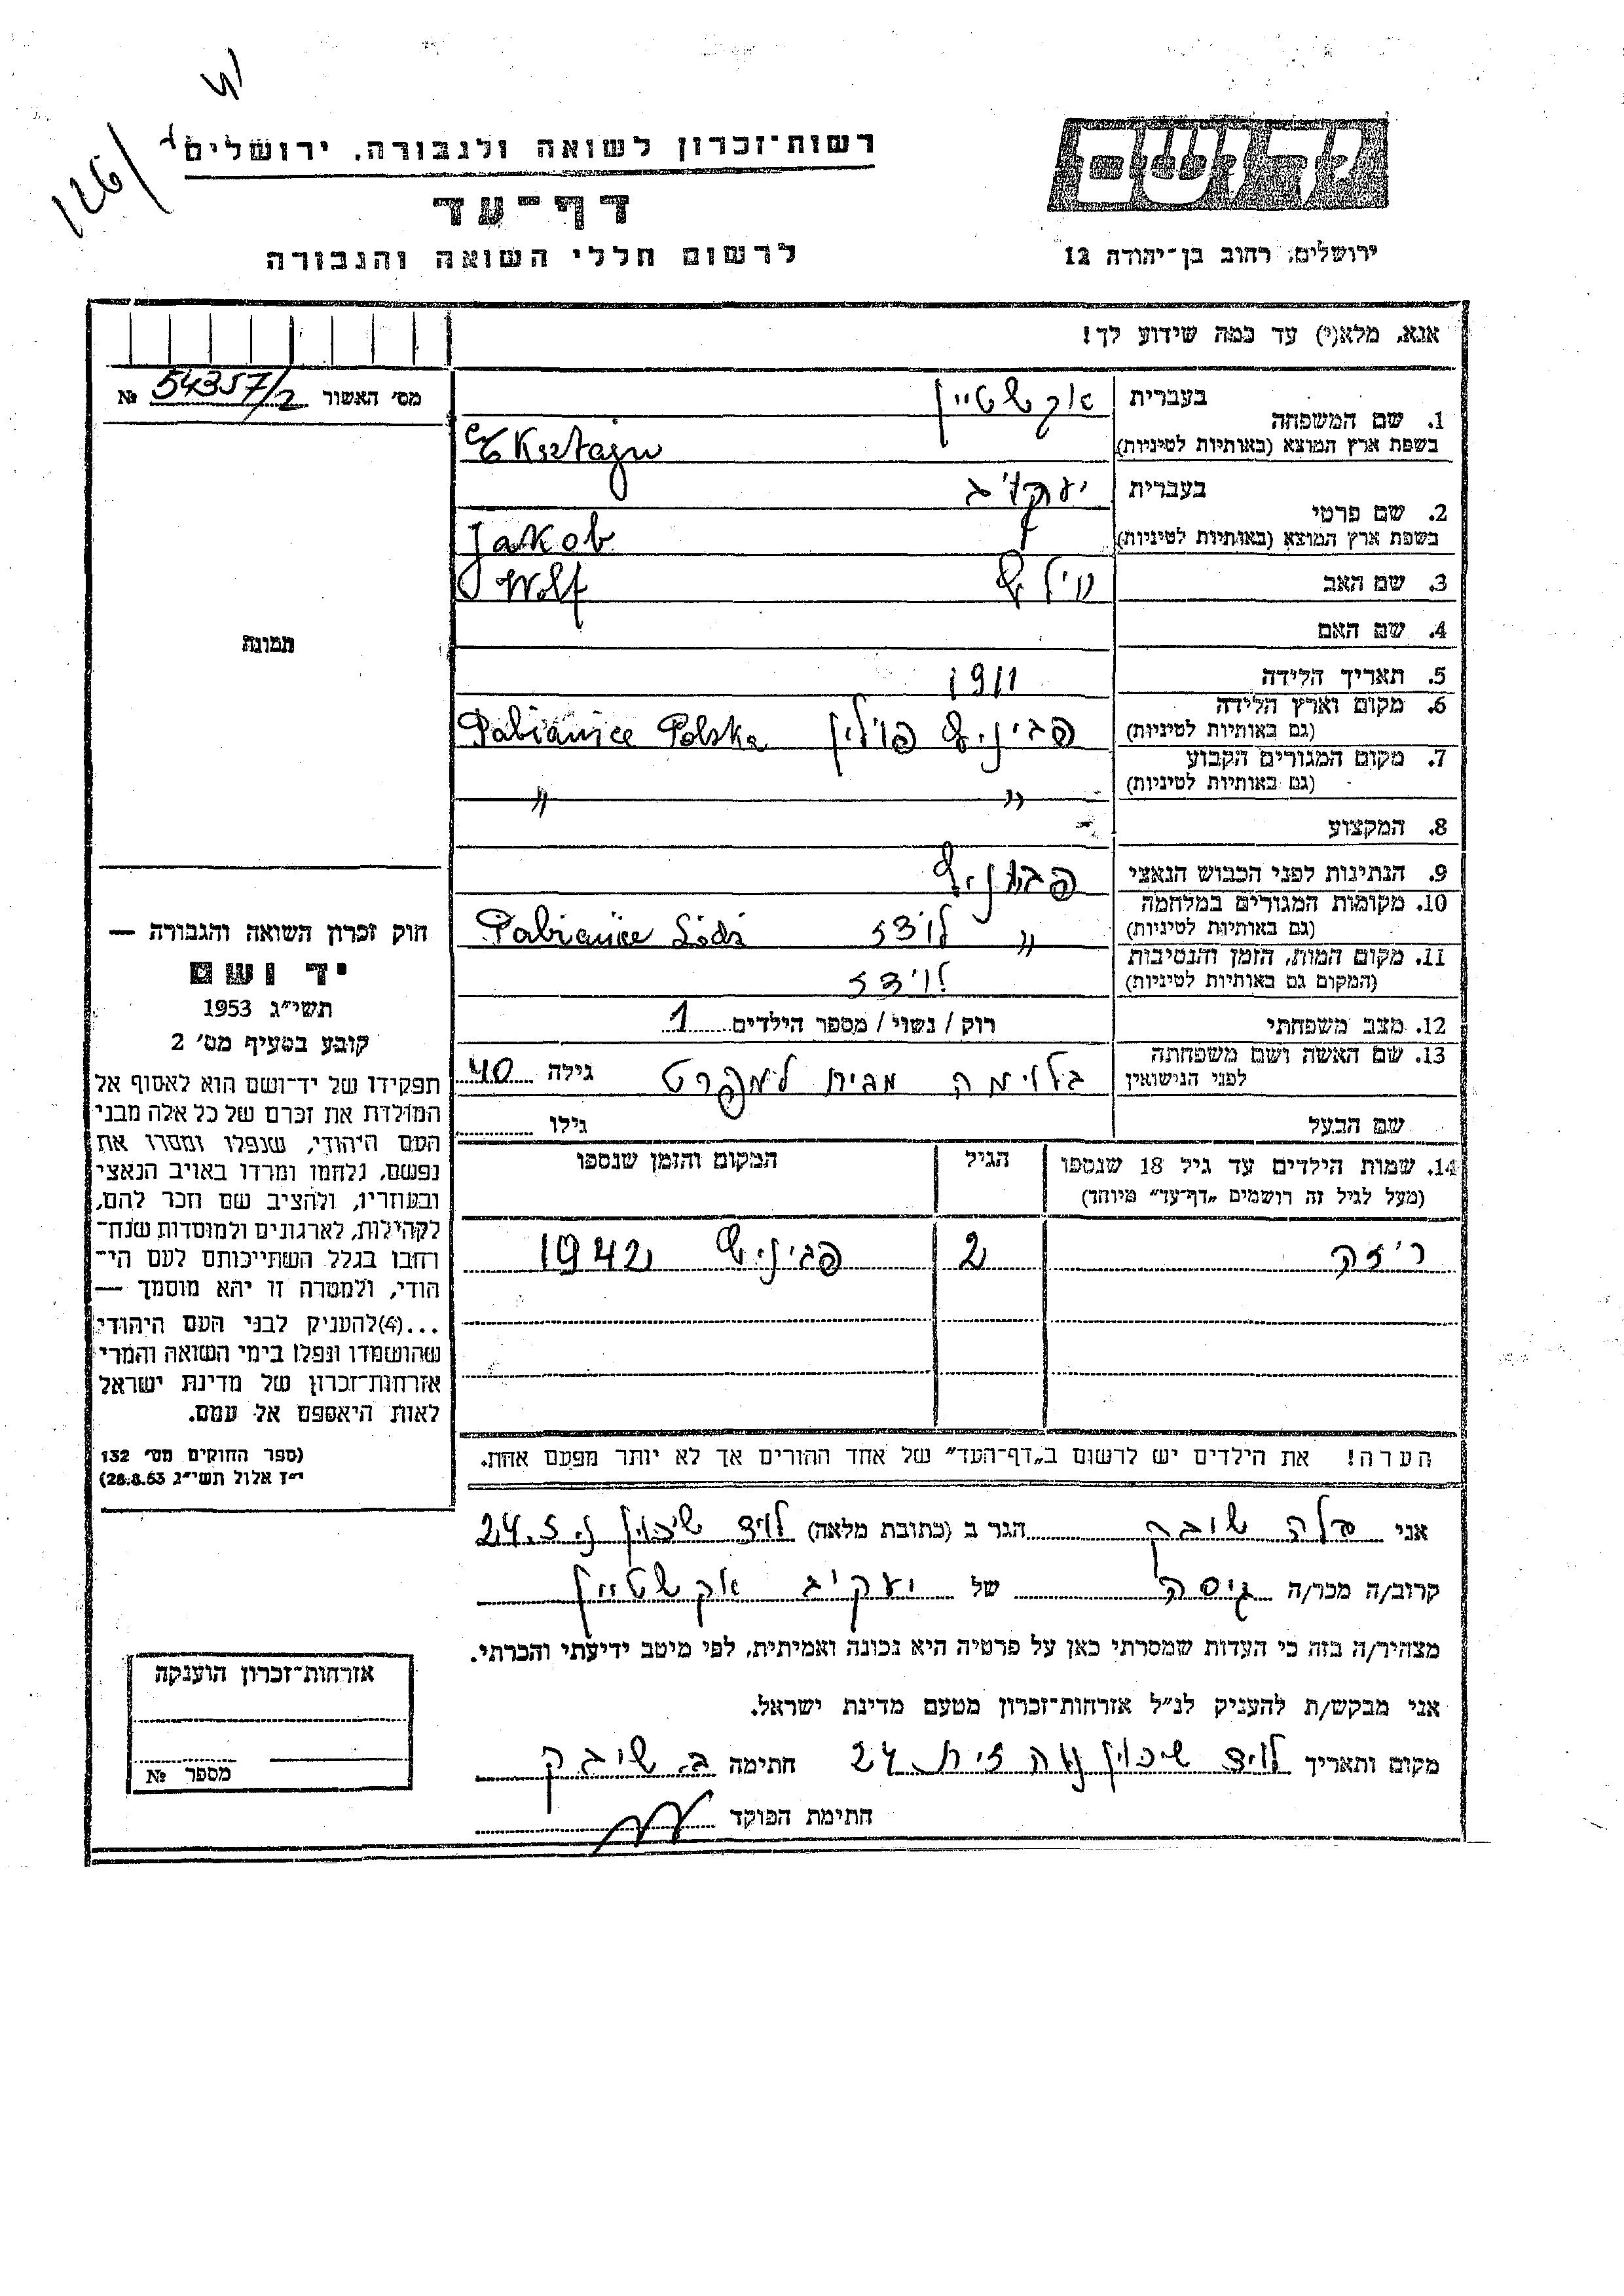 126/
רשות־זכרון לשואה ולגבורה, ירושלים
דף־עד
לרשום חללי השואה והגבורה
יד ושם
ירושלים, רחוב בן־יהודה 12
אנא, מלא(י) עד כמה שידוע לך!
מס׳ האשור № 54357/2
תמונה
1. שם המשפחה בעברית אקשטיין
בשפת ארץ המוצא (באותיות לטיניות) Eksztajn
2. שם פרטי בעברית יעקב
בשפת ארץ המוצא (באותיות לטיניות) Jakob
3. שם האב Wolf
4. שם האם
5. תאריך הלידה 1911
6. מקום וארץ הלידה
(גם באותיות לטיניות) פביניץ פולין Pabianice Polska
7. מקום המגורים הקבוע
(גם באותיות לטיניות) " "
8. המקצוע
9. הנתינות לפני הכבוש הנאצי
10. מקומות המגורים במלחמה
(גם באותיות לטיניות) " לודז Pabianice Łódź
11. מקום המות, הזמן והנסיבות
(המקום גם באותיות לטיניות) לודז
12. מצב משפחתי רוק / נשוי / מספר הילדים 1
13. שם האשה ושם משפחתה
לפני הנישואין מבית גילה 40
שם הבעל גילו
14. שמות הילדים עד גיל 18 שנספו
(מעל לגיל זה רושמים „דף־עד״ מיוחד)
הגיל
המקום והזמן שנספו
2 פביניץ 1942
הערה! את הילדים יש לרשום ב„דף־העד״ של אחד ההורים אך לא יותר מפעם אחת.
חוק זכרון השואה והגבורה —
יד ושם
תשי״ג 1953
קובע בסעיף מס׳ 2
תפקידו של יד־ושם הוא לאסוף אל
המולדת את זכרם של כל אלה מבני
העם היהודי, שנפלו ומסרו את
נפשם, נלחמו ומרדו באויב הנאצי
ובעוזריו, ולהציב שם וזכר להם,
לקהילות, לארגונים ולמוסדות שנח־
רחבו בגלל השתייכותם לעם הי־
הודי, ולמטרה זו יהא מוסמך —
...(4)להעניק לבני העם היהודי
שהושמדו ונפלו בימי השואה והמרי
אזרחות־זכרון של מדינת ישראל
לאות היאספם אל עמם.
(ספר החוקים מס׳ 132
י״ז אלול תשי״ג 28.8.53)
אני הגר ב (כתובת מלאה) לוד שיכון
קרוב/ה מכר/ה גיסה של יעקב אקשטיין
מצהיר/ה בזה כי העדות שמסרתי כאן על פרטיה היא נכונה ואמיתית, לפי מיטב ידיעתי והכרתי.
אני מבקש/ת להעניק לנ״ל אזרחות־זכרון מטעם מדינת ישראל.
מקום ותאריך לוד שיכון נוה זית 24 חתימה
חתימת הפוקד
אזרחות־זכרון הוענקה
מספר №